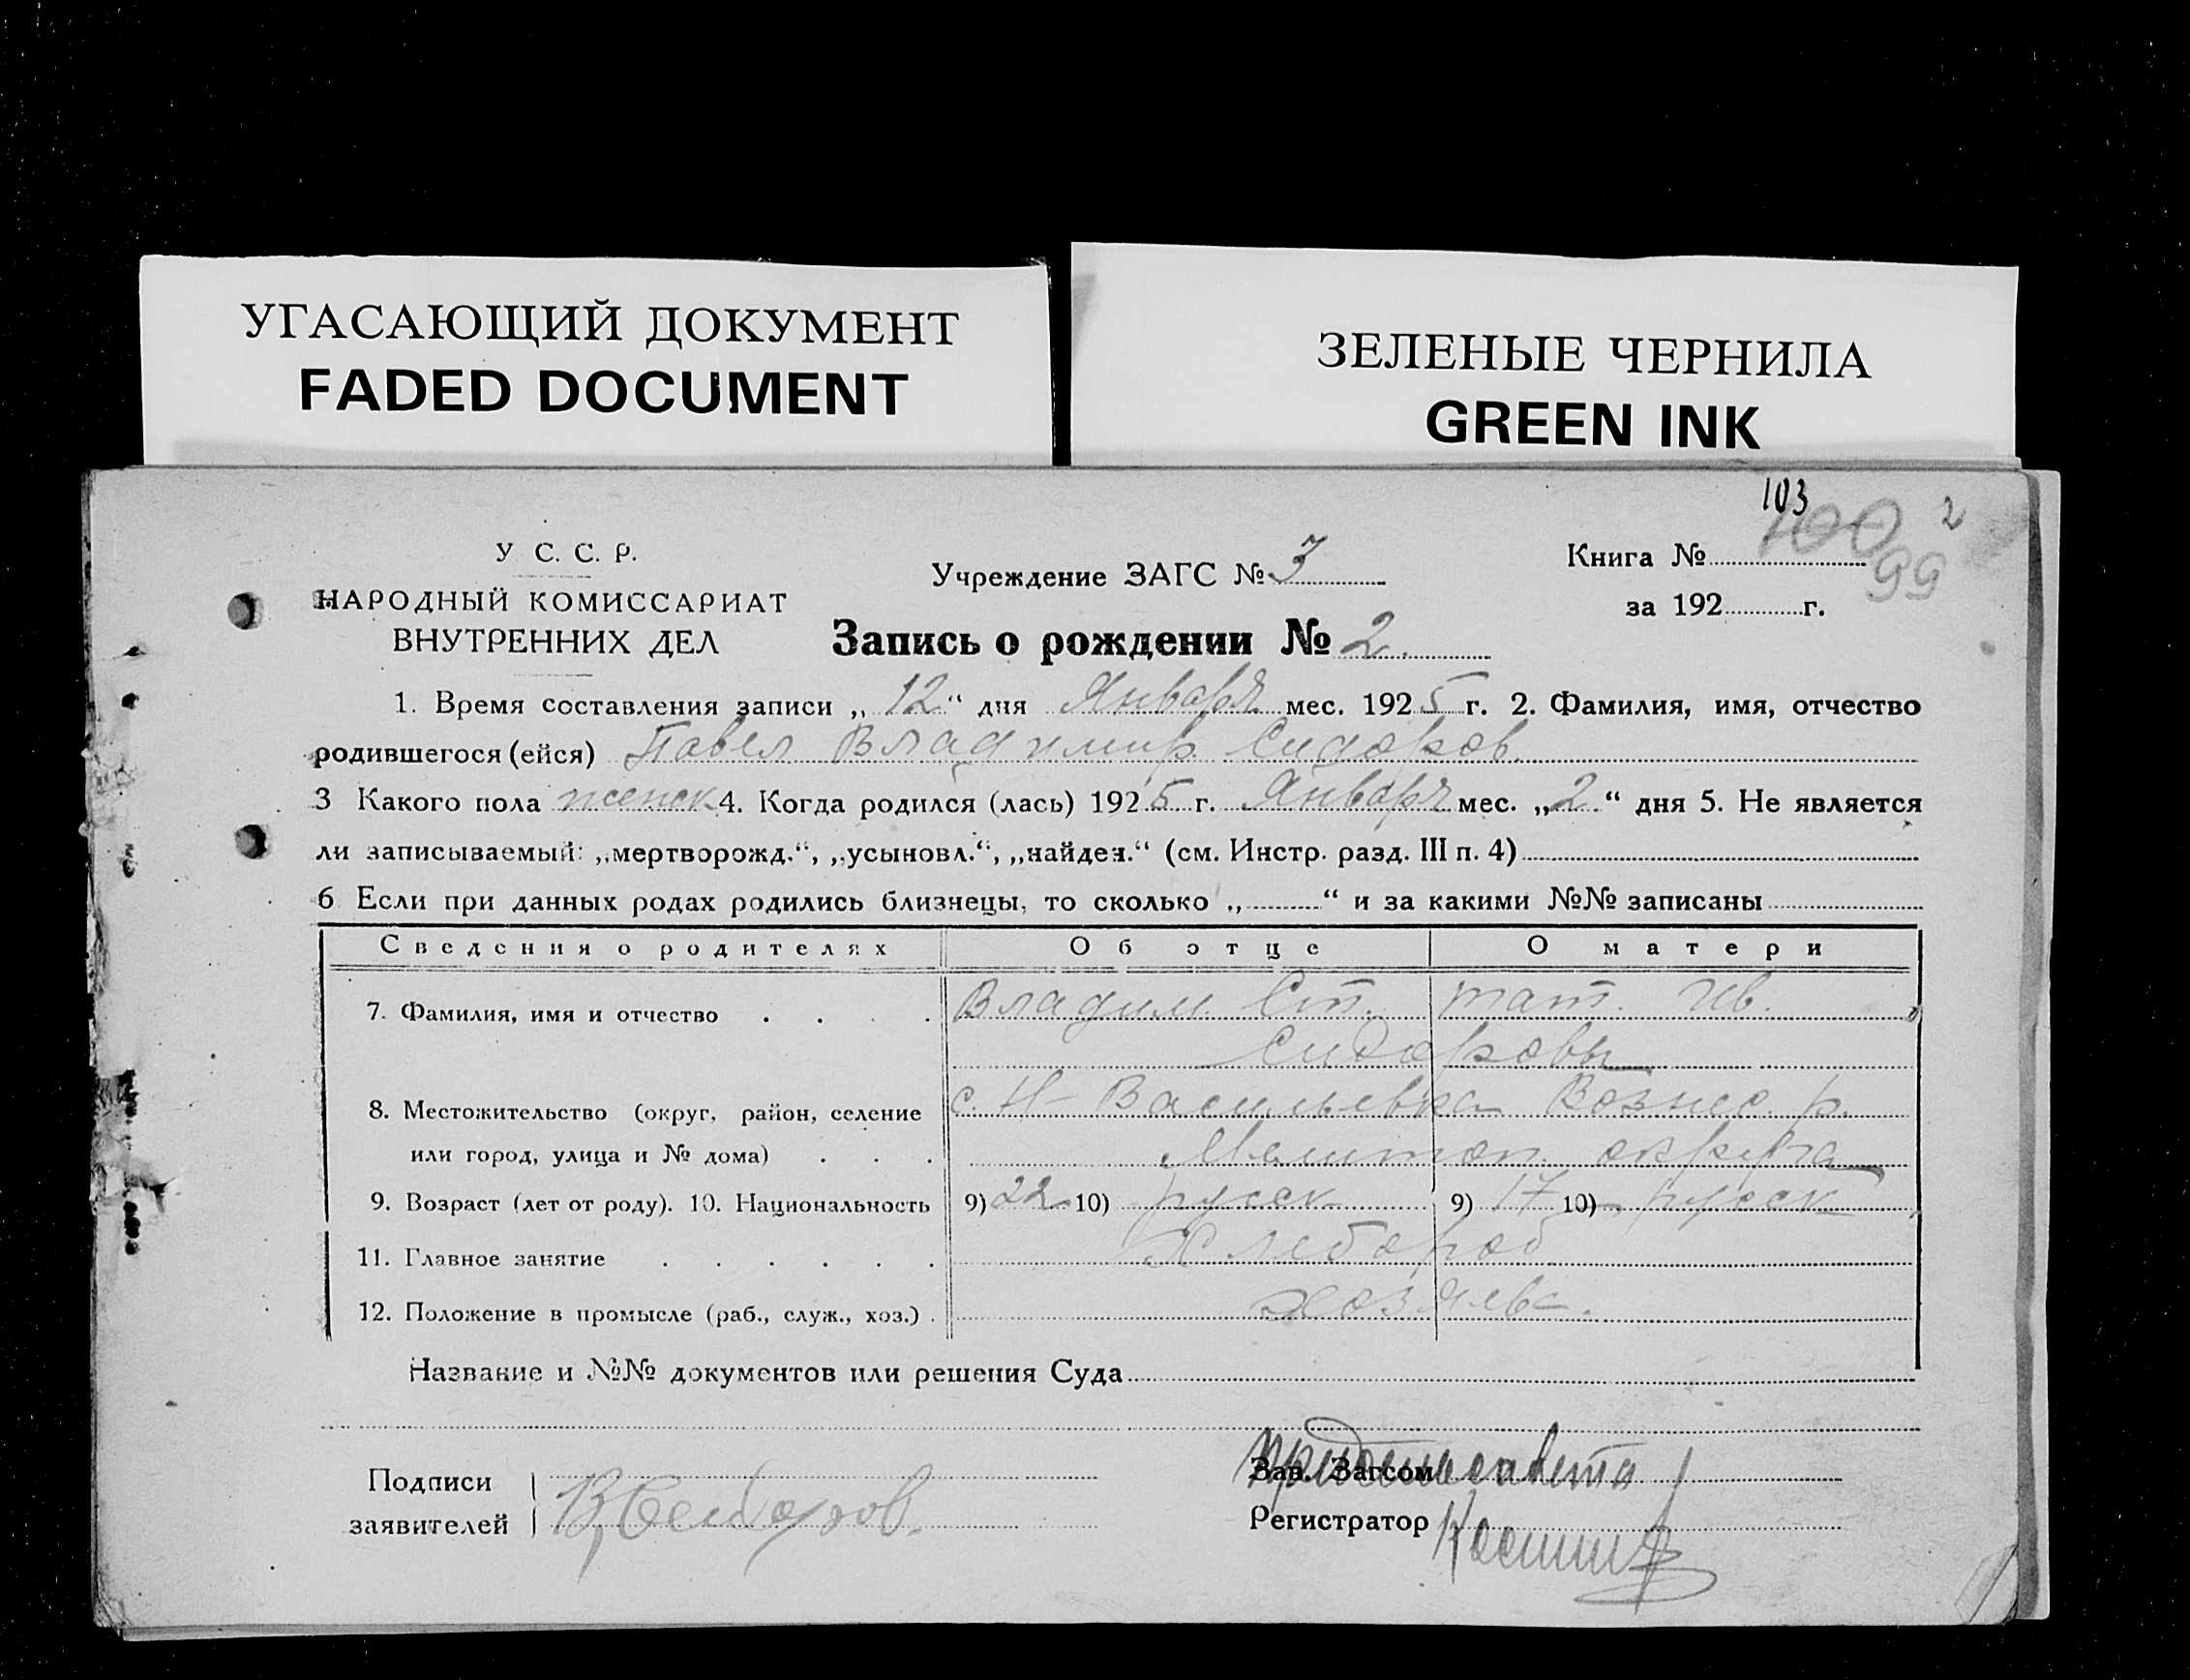 УГАСАЮЩИЙ ДОКУМЕНТ
FADED DOCUMENT
ЗЕЛЕНЫЕ ЧЕРНИЛА
GREEN INK
103
100 99 2
У С. С. Р.
НАРОДНЫЙ КОМИССАРИАТ
ВНУТРЕННИХ ДЕЛ
Учреждение ЗАГС № 3
Книга №
за 192 г.
Запись о рождении № 2.
1. Время составления записи „12“ дня Января мес. 1925 г. 2. Фамилия, имя, отчество
родившегося (ейся) Павел Владимир. Сидоров.
3 Какого пола женск 4. Когда родился (лась) 1925 г. Января мес. „2“ дня 5. Не является
ли записываемый: „мертворожд.“, „усыновл.“, „найден.“ (см. Инстр. разд. III п. 4)
6 Если при данных родах родились близнецы, то сколько „ “ и за какими №№ записаны
Сведения о родителях Об отце О матери
7. Фамилия, имя и отчество Владим. Ст. Тат. Ив.
Сидоровы
8. Местожительство (округ, район, селение с. Н-Васильевка Вознес. р.
или город, улица и № дома) Мелитоп. округа
9. Возраст (лет от роду). 10. Национальность 9) 22 10) русск 9) 17 10) русск
11. Главное занятие Хлебороб
12. Положение в промысле (раб., служ., хоз.)
Название и №№ документов или решения Суда
Подписи
заявителей В Сидоров.
Зав. Загсом
Регистратор